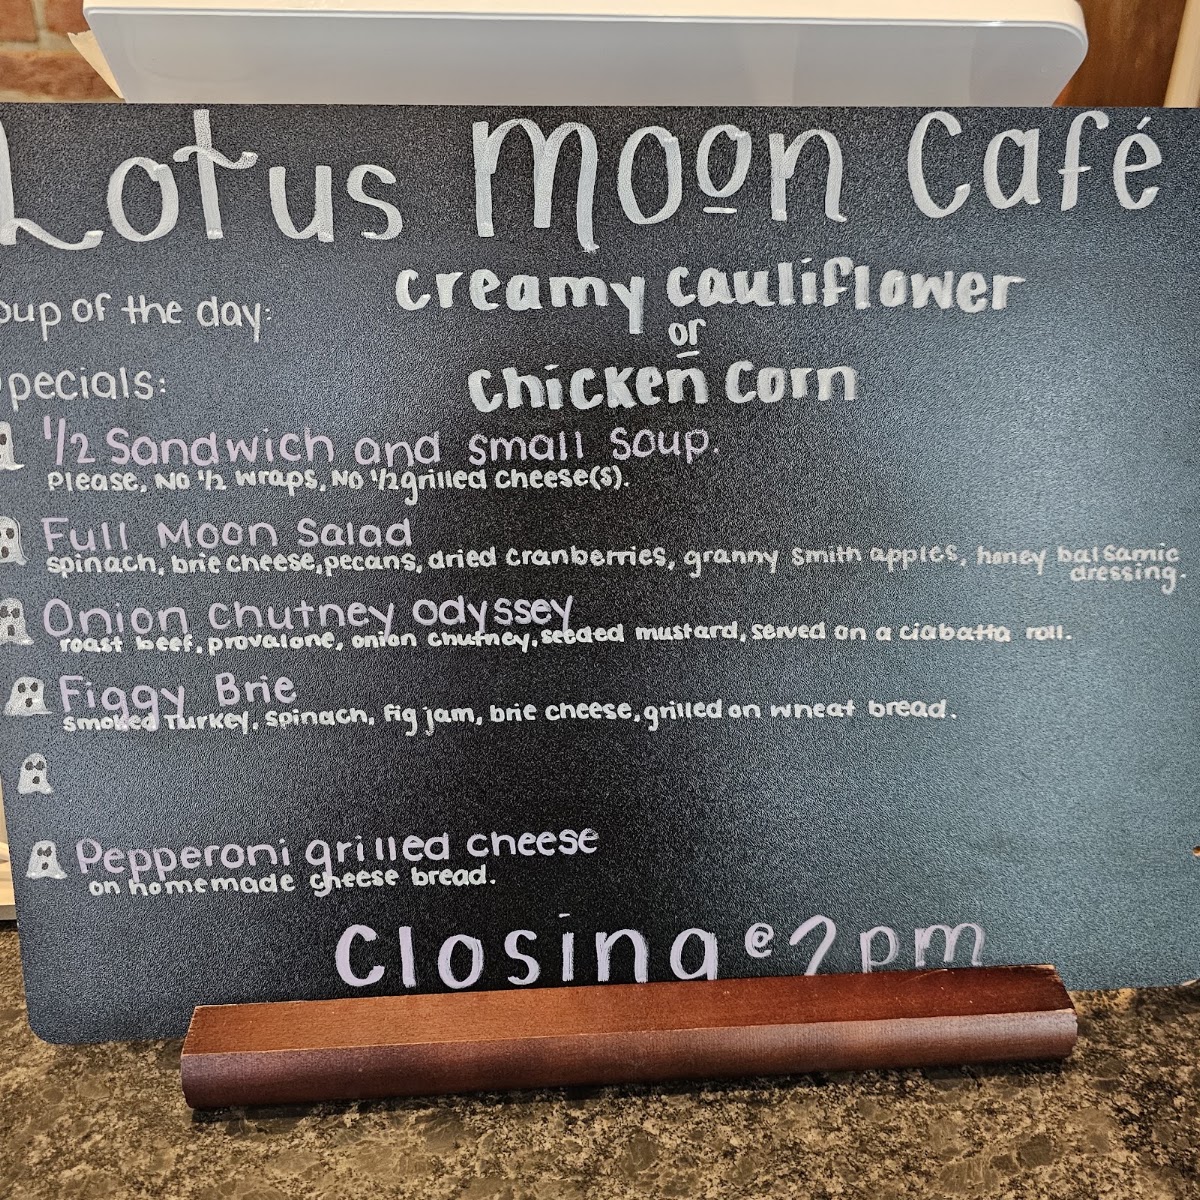 Lotus Moon Café
oup of the day:
creamy cauliflower
or
chicken corn
pecials:
1/2 Sandwich and small soup.
Please, No 1/2 wraps, No 1/2 grilled cheese(s).
Full Moon Salad
spinach, brie cheese, pecans, dried cranberries, granny smith apples, honey balsamic
dressing.
Onion chutney odyssey
roast beef, provalone, onion chutney, seeded mustard, served on a ciabatta roll.
Figgy Brie
smoked Turkey, spinach, fig jam, brie cheese, grilled on wheat bread.
Pepperoni grilled cheese
on homemade cheese bread.
closing @ 2pm